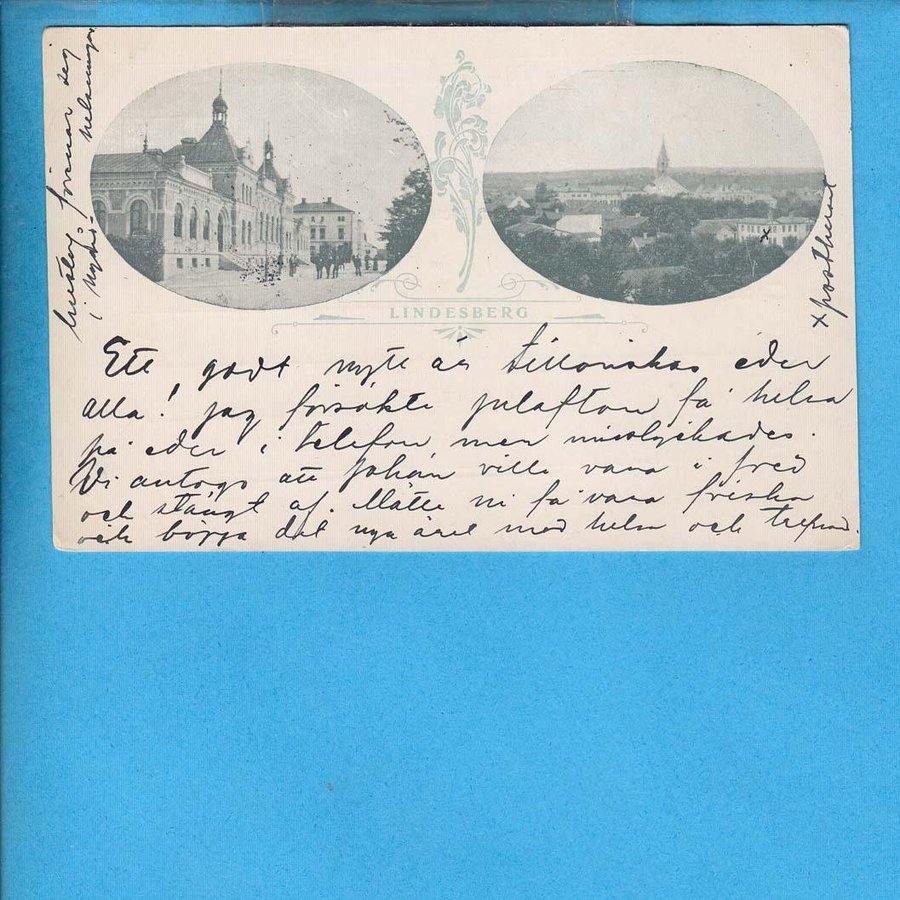 LINDESBERG
Ett godt nytt år tillönskas eder
alla! jag försökte julafton få helsa
på eder i telefon men misslyckades.
Vi antogo att Johan ville vara i fred
och stängt af. Måtte ni få vara friska
och börja det nya året med helsa och
x posthuset
förenar sig
i helsningar